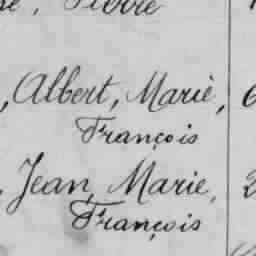 Pierre
, Albert, Marie, 6
François
, Jean, Marie, 2
François